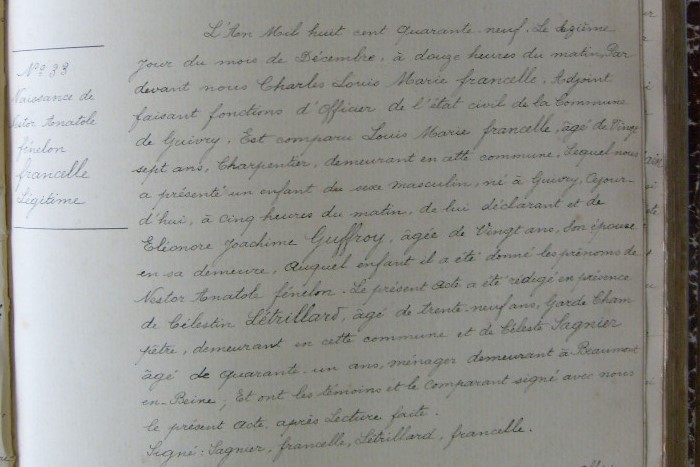 L'An Mil huit cent quarante-neuf. Le dixième
Nº 33
Naissance de
Nestor Anatole
fénelon
francelle
Légitime
jour du mois de Décembre, à douze heures du matin, Par
devant nous Charles Louis Marie francelle, Adjoint
faisant fonctions d'Officier de l'état civil de la Commune
de Guivry, Est comparu Louis Marie francelle, âgé de Vingt
sept ans, Charpentier, demeurant en cette commune, Lequel nous
a présenté un enfant du sexe masculin, né à Guivry, Cejour-
d'hui, à cinq heures du matin, de lui déclarant et de
Eléonore Joachime Guffroy, âgée de Vingt ans, Son épouse
en sa demeure, Auquel enfant il a été donné les prénoms de
Nestor Anatole fénelon. Le présent Acte a été rédigé en présence
de Célestin Létrillard, âgé de trente-neuf ans, Garde Cham
pêtre, demeurant en cette commune et de Céleste Sagnier
âgé de quarante-un ans, ménager demeurant à Beaumont
en-Beine; Et ont les témoins et le Comparant signé avec nous
le présent Acte, après Lecture faite.
Signé: Sagnier, francelle, Létrillard, francelle.